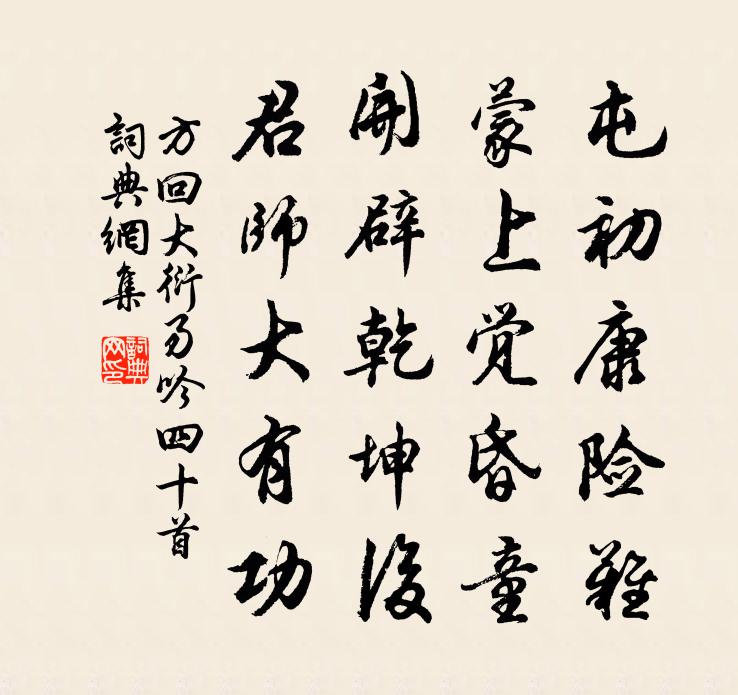 屯初康险難
蒙上覺昏童
開辟乾坤後
君師大有功
方回大衍易吟四十首
詞典網集
詞典網印